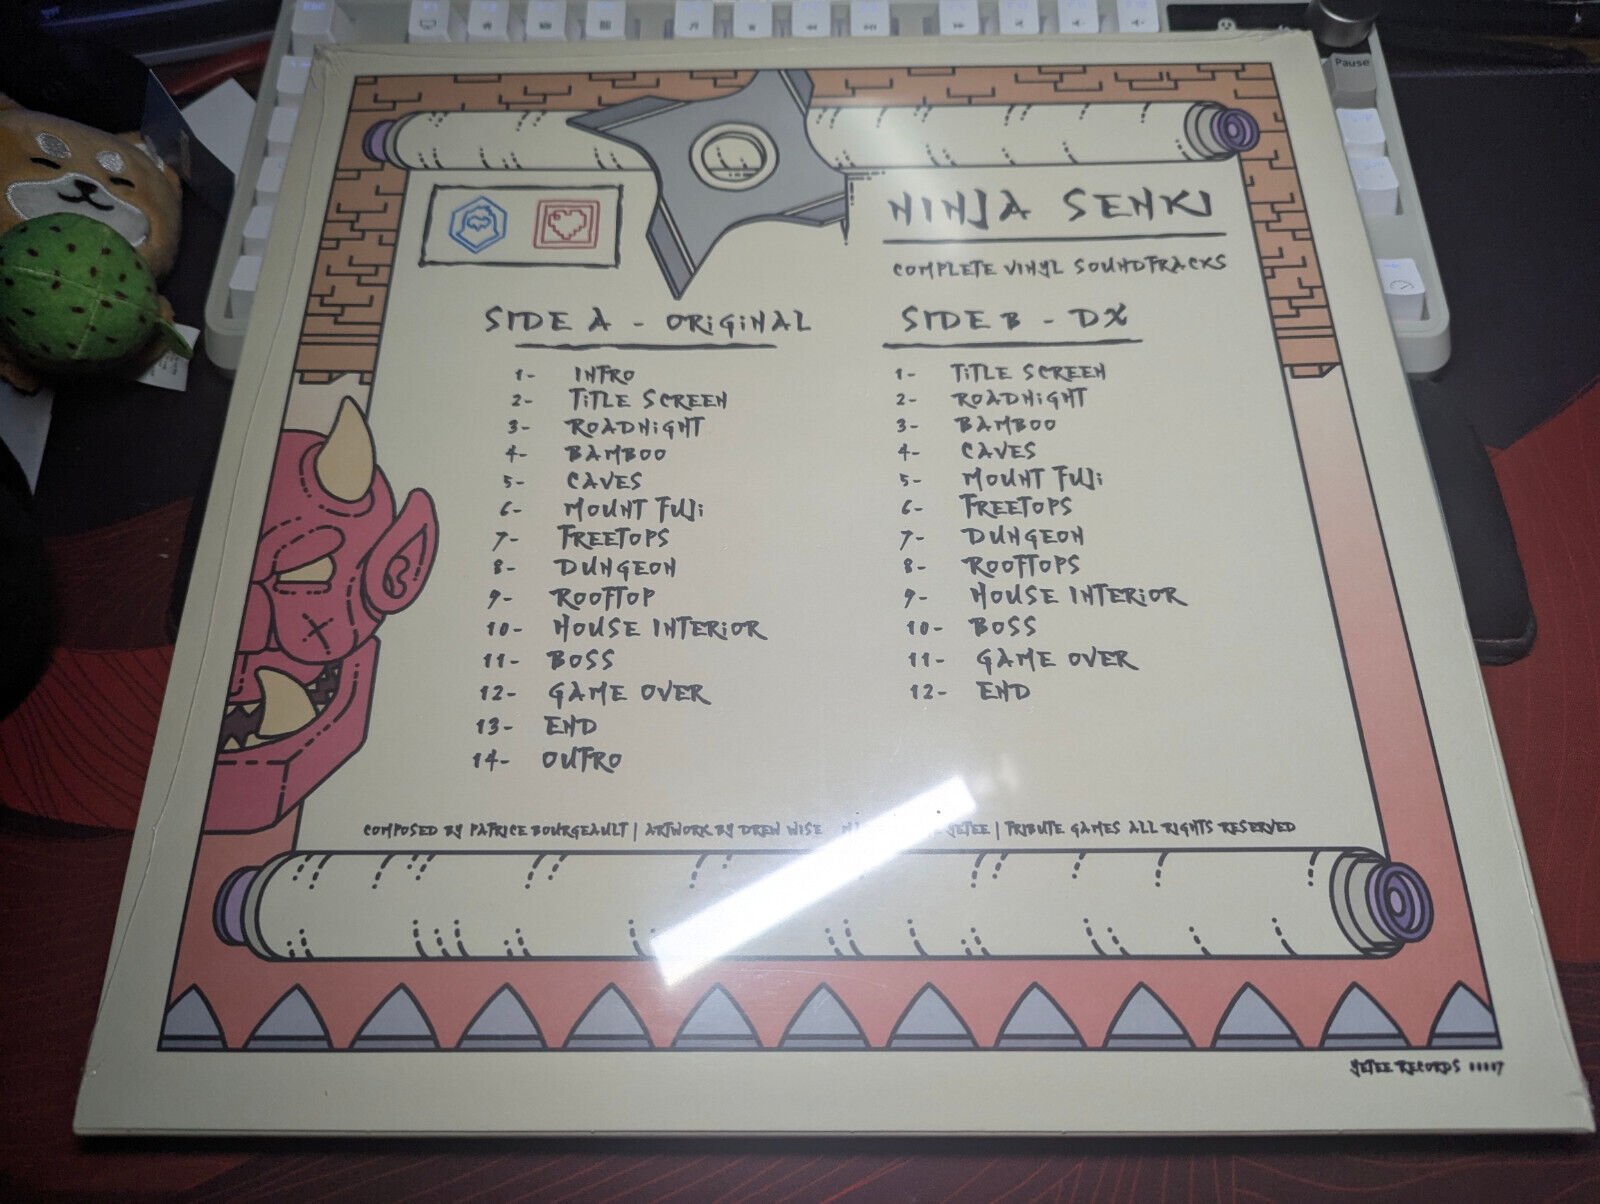 Pause
NINJA SENKI
COMPLETE VINYL SOUNDTRACKS
SIDE A - ORiGiNAL
1- INTRO
2- TiTLE SCREEN
3- ROADNiGHT
4- BAMBOO
5- CAVES
6- MOUNT FUJi
7- TREETOPS
8- DUNGEON
9- ROOFTOP
10- HOUSE INTERiOR
11- BOSS
12- GAME OVER
13- END
14- OUTRO
SIDE B - DX
1- TiTLE SCREEN
2- ROADNiGHT
3- BAMBOO
4- CAVES
5- MOUNT FUJi
6- TREETOPS
7- DUNGEON
8- ROOFTOPS
9- HOUSE INTERiOR
10- BOSS
11- GAME OVER
12- END
COMPOSED BY PATRICE BOURGEAULT | ARTWORK BY DREW WISE YETEE | TRIBUTE GAMES ALL RIGHTS RESERVED
YETEE RECORDS 00007